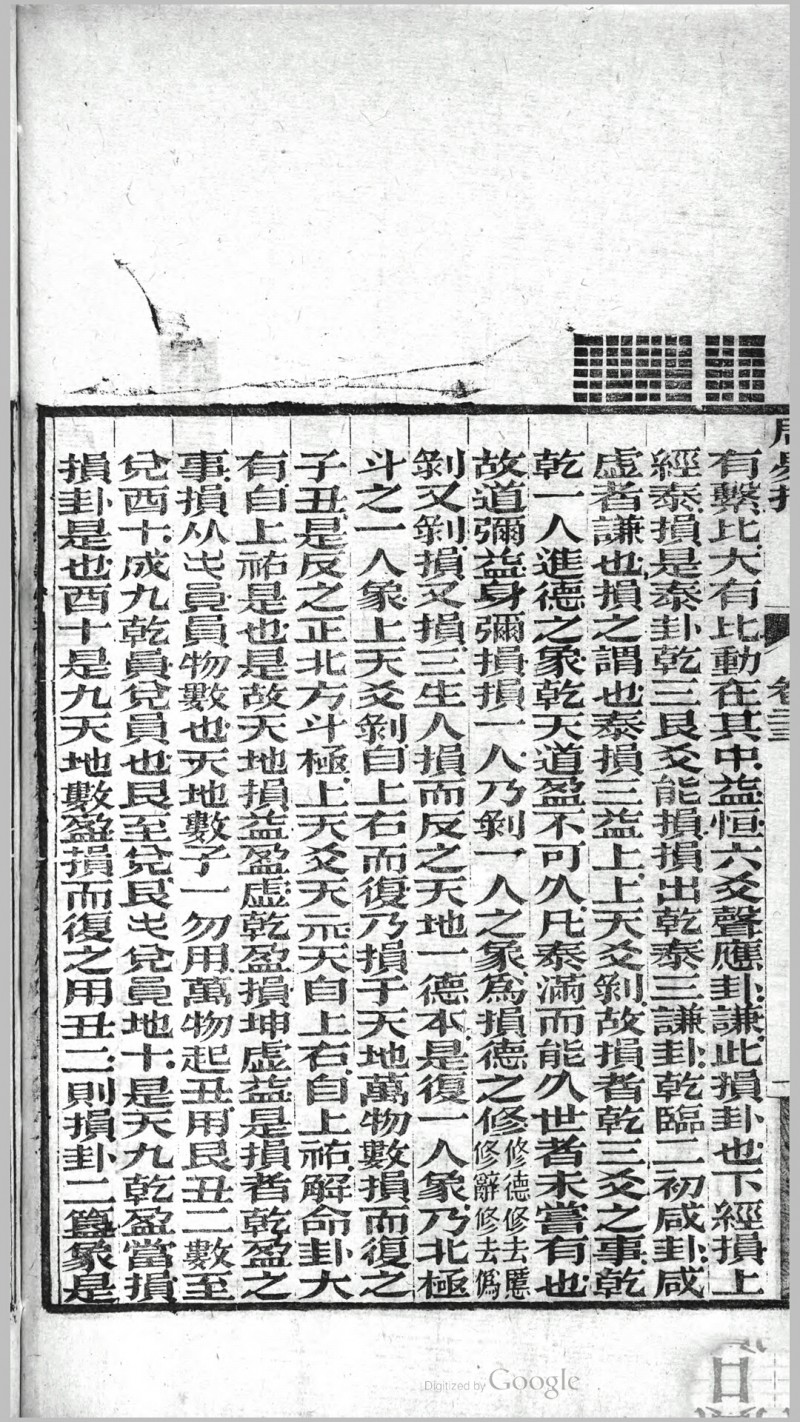 有繫比大有比動在其中益恒六爻聲應卦謙此損卦也下經損上
經泰損是泰卦乾三艮爻能損損出乾泰三謙卦乾臨二初咸卦咸
虛者謙也損之謂也泰損三益上上天爻剝故損者乾三爻之事乾
乾一人進德之象乾天道盈不可久凡泰滿而能久世者未嘗有也
故道彌益身彌損損一人乃剝一人之象為損德之修修德修去慝修辭修去偽
剝又剝損又損三生人損而反之天地一德本是復一人象乃北極
斗之一人象上天爻剝自上右而復乃損于天地萬物數損而復之
子丑是反之正北方斗極上天爻天示天自上右自上祐解命卦大
有自上祐是也是故天地損益盈虛乾盈損坤虛益是損者乾盈之
事損从屯員員物數也天地數子一勿用萬物起丑用艮丑二數至
兌酉十成九乾員兌員也艮至兌艮屯兌員地十是天九乾盈當損
損卦是也酉十是九天地數盈損而復之用丑二則損卦二簋象是
卷三
Digitized by Google